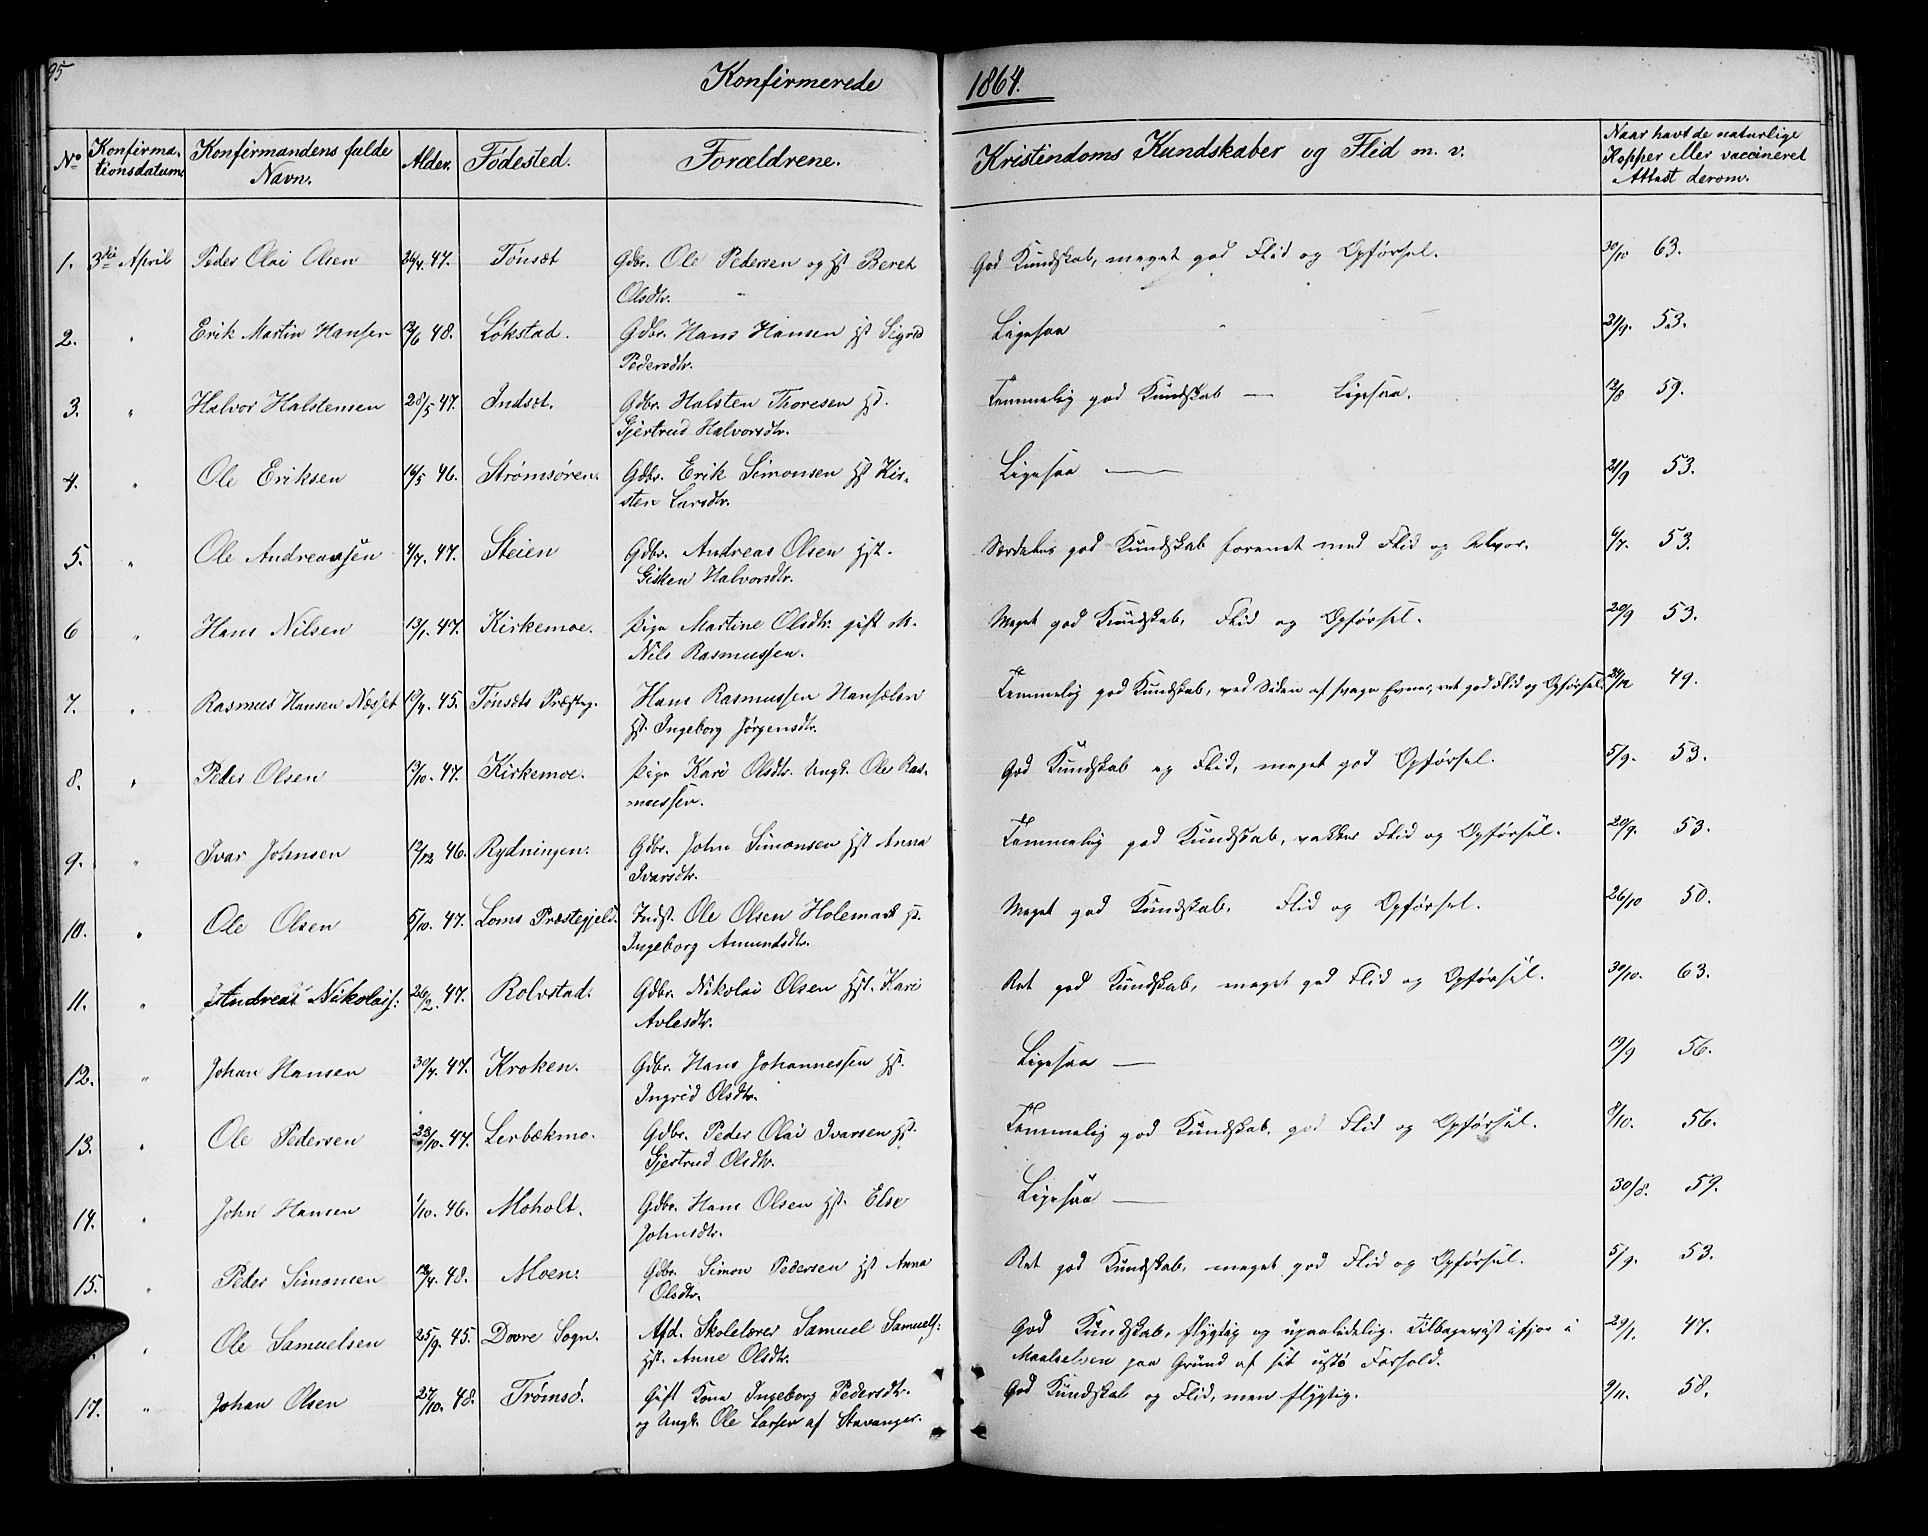 95
Konfirmerede 1864.
No Konfirmationsdatum Konfirmandens fulde Navn. Alder. Fødested. Forældrene. Kristendoms Kundskaber og Flid m. v. Naar havt de naturlige Kopper eller vaccineret Attest derom.
1. 3die April Peder Olai Olsen 26/4. 47. Tønset Gdbr. Ole Pedersen og Hst Beret God Kundskab, meget god Flid og Opførsel. 30/10 63.
Olsdtr.
2. " Erik Martin Hansen 12/6 48. Løkstad. Gdbr. Hans Hansen Hst Sigrid Ligesaa 21/9. 53.
Pedersdtr.
3. " Halvor Halstensen 28/5 47. Indset. Gdbr. Halsten Thoresen Hst. Temmelig god Kundskab — Ligesaa. 12/8 59.
Gjertrud Halvorsdtr.
4. " Ole Eriksen 16/5 46. Strømsøren. Gdbr. Erik Simonsen Hst Kir- Ligesaa — 21/9 53.
sten Larsdtr.
5. " Ole Andreassen 4/7. 47. Steien Gdbr. Andreas Olsen Hst. Særdeles god Kundskab forenet med Flid og Alvor. 6/7. 53.
Gisken Halvorsdtr.
6 " Hans Nilsen 13/1. 47. Kirkemoe. Pige Martine Olsdtr. gift M. Meget god Kundskab, Flid og Opførsel. 20/9 53.
Nils Rasmussen.
7. " Rasmus Hansen Næsset 19/4. 45. Tønsets Præsteg. Hans Rasmussen Hansælen Temmelig god Kundskab, ved Siden af svage Evner, ret god Flid og Opførsel. 21/12 49.
Hst. Ingeborg Jørgensdtr.
8. " Peder Olsen 13/10. 47. Kirkemoe. Pige Kari Olsdtr. Ungk. Ole Ras- God Kundskab og Flid, meget god Opførsel. 5/9. 53.
mussen.
9. " Ivar Johnsen 12/12 46. Rydningen. Gdbr. John Simonsen Hst Anna Temmelig god Kundskab, vakker Flid og Opførsel. 20/9. 53.
Ivarsdtr.
10. " Ole Olsen 5/10. 47. Loms Præstegjeld. Indst. Ole Olsen Holemark Hst. Meget god Kundskab, Flid og Opførsel. 26/10 50.
Ingeborg Amundsdtr.
11. " Andreas Nikolais: 26/2. 47. Rolvstad. Gdbr. Nikolai Olsen Hst. Kari Ret god Kundskab, meget god Flid og Opførsel. 30/10. 63.
Avlesdtr.
12. " Johan Hansen 30/4. 47. Kroken. Gdbr. Hans Johannessen Hst. Ligesaa — 19/9 56.
Ingrid Olsdtr.
13. " Ole Pedersen 23/10. 47. Lerbækmo. Gdbr. Peder Olai Ivarsen Hst. Temmelig god Kundskab, god Flid og Opførsel. 8/10. 56.
Gjertrud Olsdtr.
14. " John Hansen 1/10. 46. Moholt. Gdbr. Hans Olsen Hst. Else Ligesaa — 30/8. 59.
Johnsdtr.
15. " Peder Simonsen 12/4. 48. Moen. Gdbr. Simon Pedersen Hst Anna Ret god Kundskab, meget god Flid og Opførsel. 5/9. 53.
Olsdtr.
" Ole Samuelsen 25/9. 45. Dovre Sogn. Afd. Skolelærer Samuel Samuels: God Kundskab, flygtig og upaalidelig. Tilbagevist ifjor i 29/1. 47.
Hst. Anne Olsdtr. Maalselven paa Grund af sit Forhold.
17. " Johan Olsen 27/10. 48. Tromsø. Gift Kone Ingeborg Pedersdtr. God Kundskab og Flid, men flygtig. 9/11. 58.
og Ungk. Ole Larsen af Stavanger.